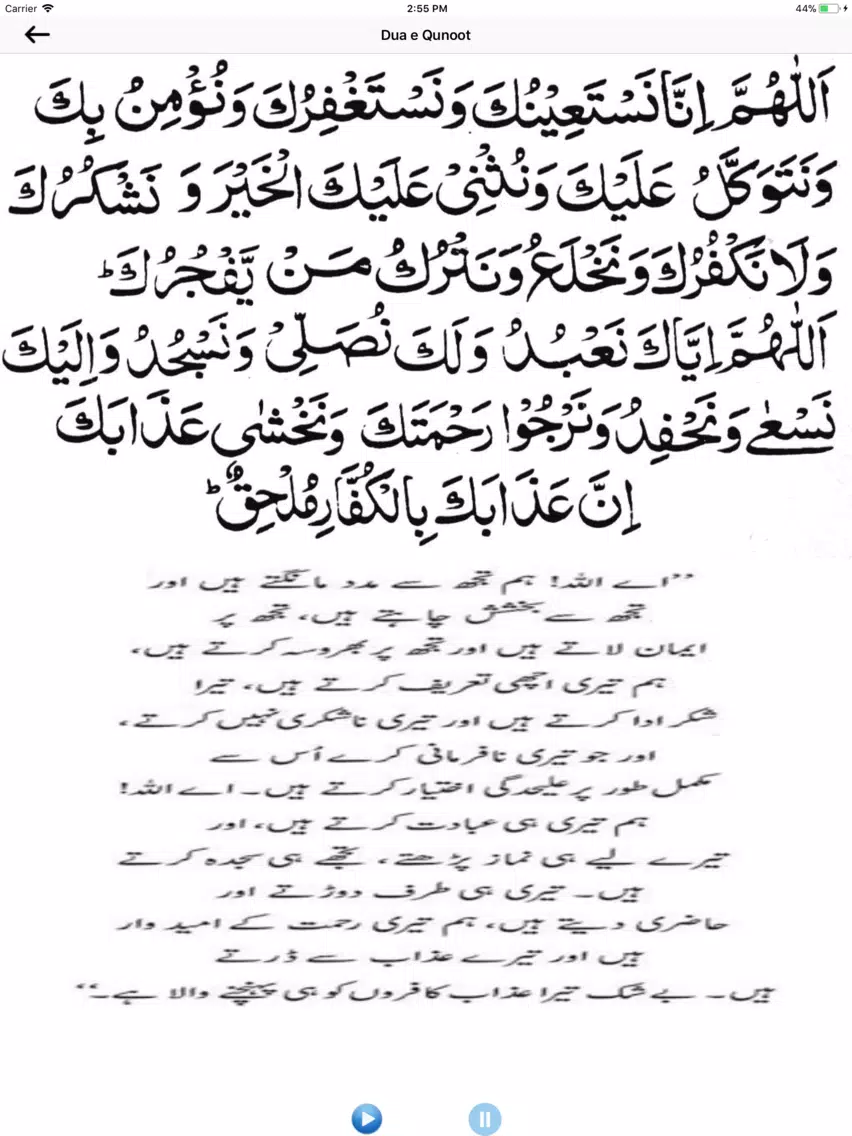 Carrier 2:55 PM 44%
Dua e Qunoot
اَللّٰهُمَّ اِنَّا نَسْتَعِيْنُكَ وَنَسْتَغْفِرُكَ وَنُؤْمِنُ بِكَ
وَنَتَوَكَّلُ عَلَيْكَ وَنُثْنِیْ عَلَيْكَ الْخَيْرَ وَ نَشْكُرُكَ
وَلَا نَكْفُرُكَ وَنَخْلَعُ وَنَتْرُكُ مَنْ يَّفْجُرُكَ ؕ
اَللّٰهُمَّ اِيَّاكَ نَعْبُدُ وَلَكَ نُصَلِّیْ وَنَسْجُدُ وَاِلَيْكَ
نَسْعٰی وَنَحْفِدُ وَنَرْجُوْا رَحْمَتَكَ وَنَخْشٰی عَذَابَكَ
اِنَّ عَذَابَكَ بِالْكُفَّارِ مُلْحِقٌ ؕ
”اے اللہ! ہم تجھ سے مدد مانگتے ہیں اور
تجھ سے بخشش چاہتے ہیں، تجھ پر
ایمان لاتے ہیں اور تجھ پر بھروسہ کرتے ہیں،
ہم تیری اچھی تعریف کرتے ہیں، تیرا
شکر ادا کرتے ہیں اور تیری ناشکری نہیں کرتے،
اور جو تیری نافرمانی کرے اُس سے
مکمل طور پر علیحدگی اختیار کرتے ہیں۔ اے اللہ!
ہم تیری ہی عبادت کرتے ہیں، اور
تیرے لیے ہی نماز پڑھتے، تجھے ہی سجدہ کرتے
ہیں۔ تیری ہی طرف دوڑتے اور
حاضری دیتے ہیں، ہم تیری رحمت کے امید وار
ہیں اور تیرے عذاب سے ڈرتے
ہیں۔ بے شک تیرا عذاب کافروں کو ہی پہنچنے والا ہے۔“